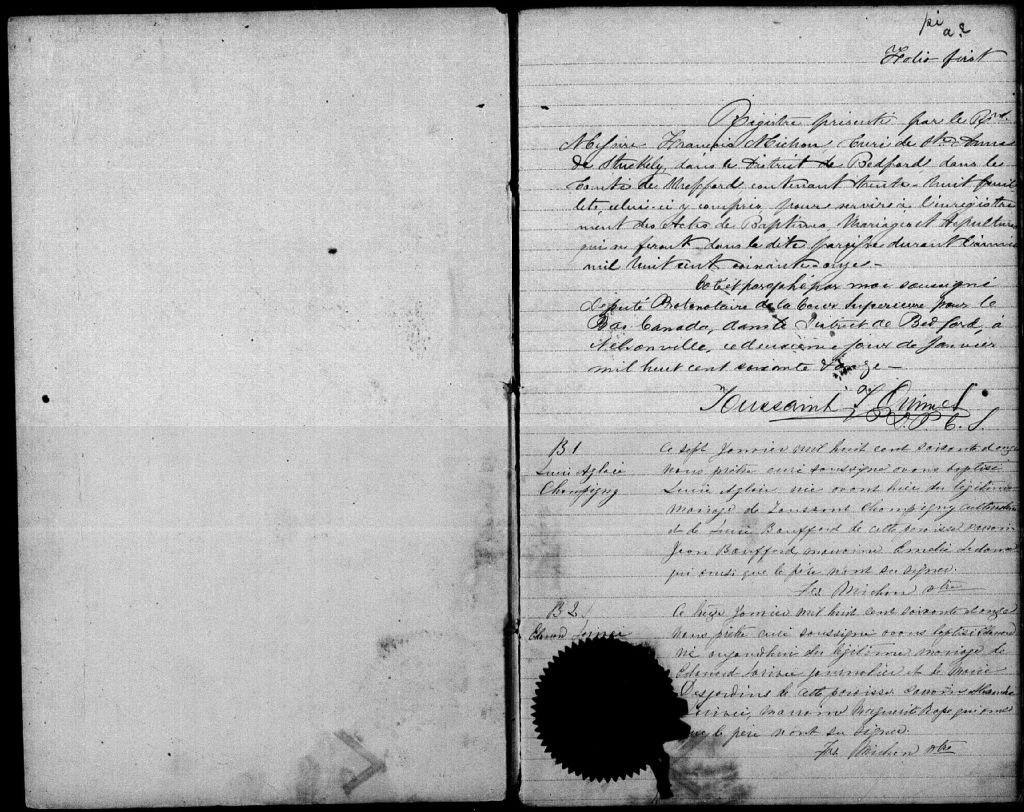 Folio first
Registre présenté par le Rvd.
Messire François Michon Curé de St. Annas
de Stuckely, dans le District de Bedford, dans les
Comté de Shefford contenant trente-huit feuil
lets, celui-ci y compris, pour servir à l'enregistre
ment des Actes de Baptêmes Mariages et Sépultures
qui se feront dans la dite paroisse durant l'année
mil huit cent soixante-onze-
Coté et paraphé par moi soussigné
Député Protonotaire de la Cour Supérieure pour le
Bas Canada, dans le District de Bedford, à
Nelsonville, ce deuxième jour de Janvier
mil huit cent soixante & onze-
Toussaint
D. P. C. S.
B 1
Lucie Aglaée
Champigny
Ce sept Janvier mil huit cent soixante et onze
nous prêtre curé soussigné avons baptisé
Lucie Aglaée née avant hier du légitime
mariage de Toussaint Champigny cultivateur
et de Lucie Bouffard de cette paroisse parrain
Jean Bouffard marraine Emelie
qui ainsi que le père n'ont su signer.
Frs Michon ptre
B 2
Edouard
Ce Janvier mil huit cent soixante et onze
nous prêtre curé soussigné avons baptisé Edouard
né aujourd'hui du légitime mariage de
Edouard journalier et de Marie
Desjardins de cette paroisse parrain
marraine Marguerite qui ainsi
que le père n'ont su signer.
Frs Michon ptre